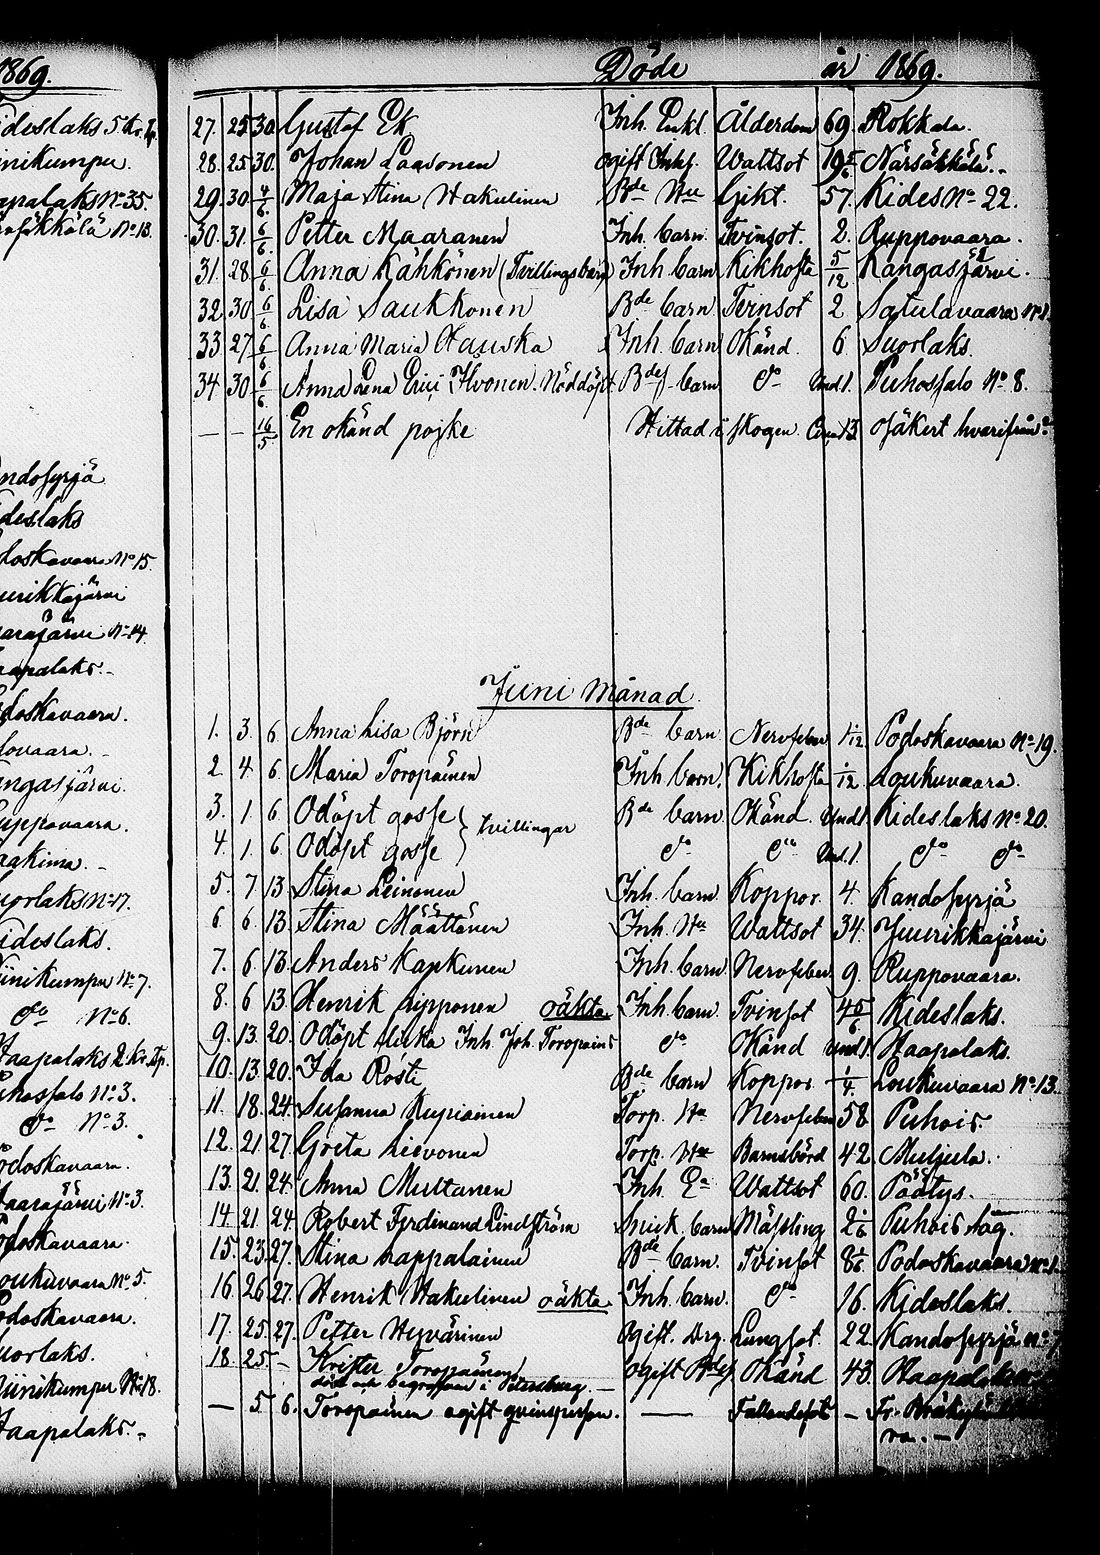 1869.
ideslaks
inikumpu.
apalaks No 35.
No 13.
ndosyrjä
deslaks
doskavaara No 15.
urikkajärvi
arajärvi No 14.
aapalaks.-
doskavaara.
ovaara.-
ngasjärvi.
uppovaara.
aakima.-
uorlaks No 17.
ideslaks.
iinikumpu No 7.
do No 6.
Haapalaks 2.
uhossalo No 3.
do No 3.
odoskavaara.
aarajärvi No 3.
odoskavaara.
oukuvaara No 5.
odoskavaara.
uorlaks.
iinikumpu No 18.
aapalaks.-
Döde år 1869.
27. 25 30 Gustaf Ek Inh. Enkl. Ålderdom 69. Rokkala.
28. 25 30. Johan Laasonen ogift Inhs. Wattsot 19 Närsäkkälä.
29. 30 4/6. Maja Stina Hakulinen Bde Hu Gikt. 57. Kides No 22.
30. 31. 6/6 Petter Maaranen Inh. barn Tvinsot. 2. Ruppovaara.
31. 28 6/6 Anna Kähkönen (Tvillingsbarn) Inh barn Kikhosta 5/12 Kangasjärvi.
32 30 6/6 Lisa Saukkonen Bde barn Tvinsot 2 Satulavaara
33 27 6/6 Anna Maria Hauska Inh. barn Okänd. 6 Suorlaks.
34 30 6/6. Anna Lena Hvonen. Nöddöpt Bdes. barn do Und 1. Puhossalo No 8.
— — 16/5 En okänd pojke Hittad i skogen. Circa 13 osäkert hvarifrån.
Juni månad
1. 3. 6. Anna Lisa Björn Bde barn Nervfeber 1/12 Podoskavaara No 19.
2 4. 6. Maria Toropainen Inh. barn. Kikhosta 1/12 Loukuvaara.
3. 1. 6. Odöpt gosse } tvillingar Bde barn Okänd. Und 1. Kideslaks No 20.
4. 1. 6. Odöpt gosse do do Und. 1. do do
5. 7 13 Stina Leinonen Inh. barn Koppor. 4. Kandosyrjä
6 6 13. Stina Määttänen Inh. Hu Wattsot 34. Juurikkajärvi
7. 6 13 Anders Kapkunen Inh. barn Nervfeber 9. Ruppovaara.
8. 6 13 Henrik Lipponen oäkta Inh. barn. Tvinsot Kideslaks.
9. 13. 20. Odöpt flicka Inh. Joh. Toropains do Okänd Und 1. Haapalaks.
10. 13 20. Ida Rösti Bde barn Koppor 1/4. Loukuvaara No 13.
11. 18. 24. Susanna Kupiainen Torp. Hu Nervfeber 58 Puhois.
12. 21 27. Greta Lievonen Torp. Hu Barnsbörd 42. Muljula.
13. 21. 24. Anna Multanen Inh. Ea Wattsot 60. Päätys.
14. 21. 24. Robert Ferdinand Lindström Snick. barn Mässling 2 1/6 Puhois Såg.
15. 23 27. Stina Lappalainen Bde barn. Tvinsot 8 Podoskavaara
16. 26 27. Henrik Hakulinen oäkta Inh. barn. do 16. Kideslaks.
17. 25. 27. Petter Hyvärinen Ogift. Drg. Lungsot. 22. Kandosyrjä
18. 25 – Krister Toropainen ogift Bdes Okänd 43. Haapalaks
död och begrafven i Petersburg. —
— 5. 6. Toropainen ogift qvinsperson. — Fallandesot –